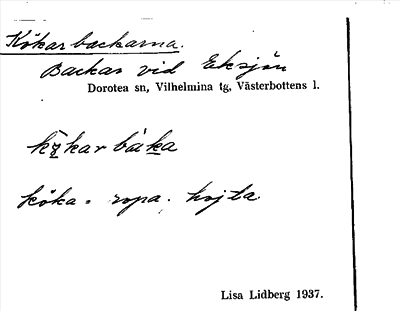 Kökarbackarna.
Backar vid Eksjön
Dorotea sn, Vilhelmina tg, Västerbottens l.
kö̱kar bàka
köka = ropa. hojta.
Lisa Lidberg 1937.